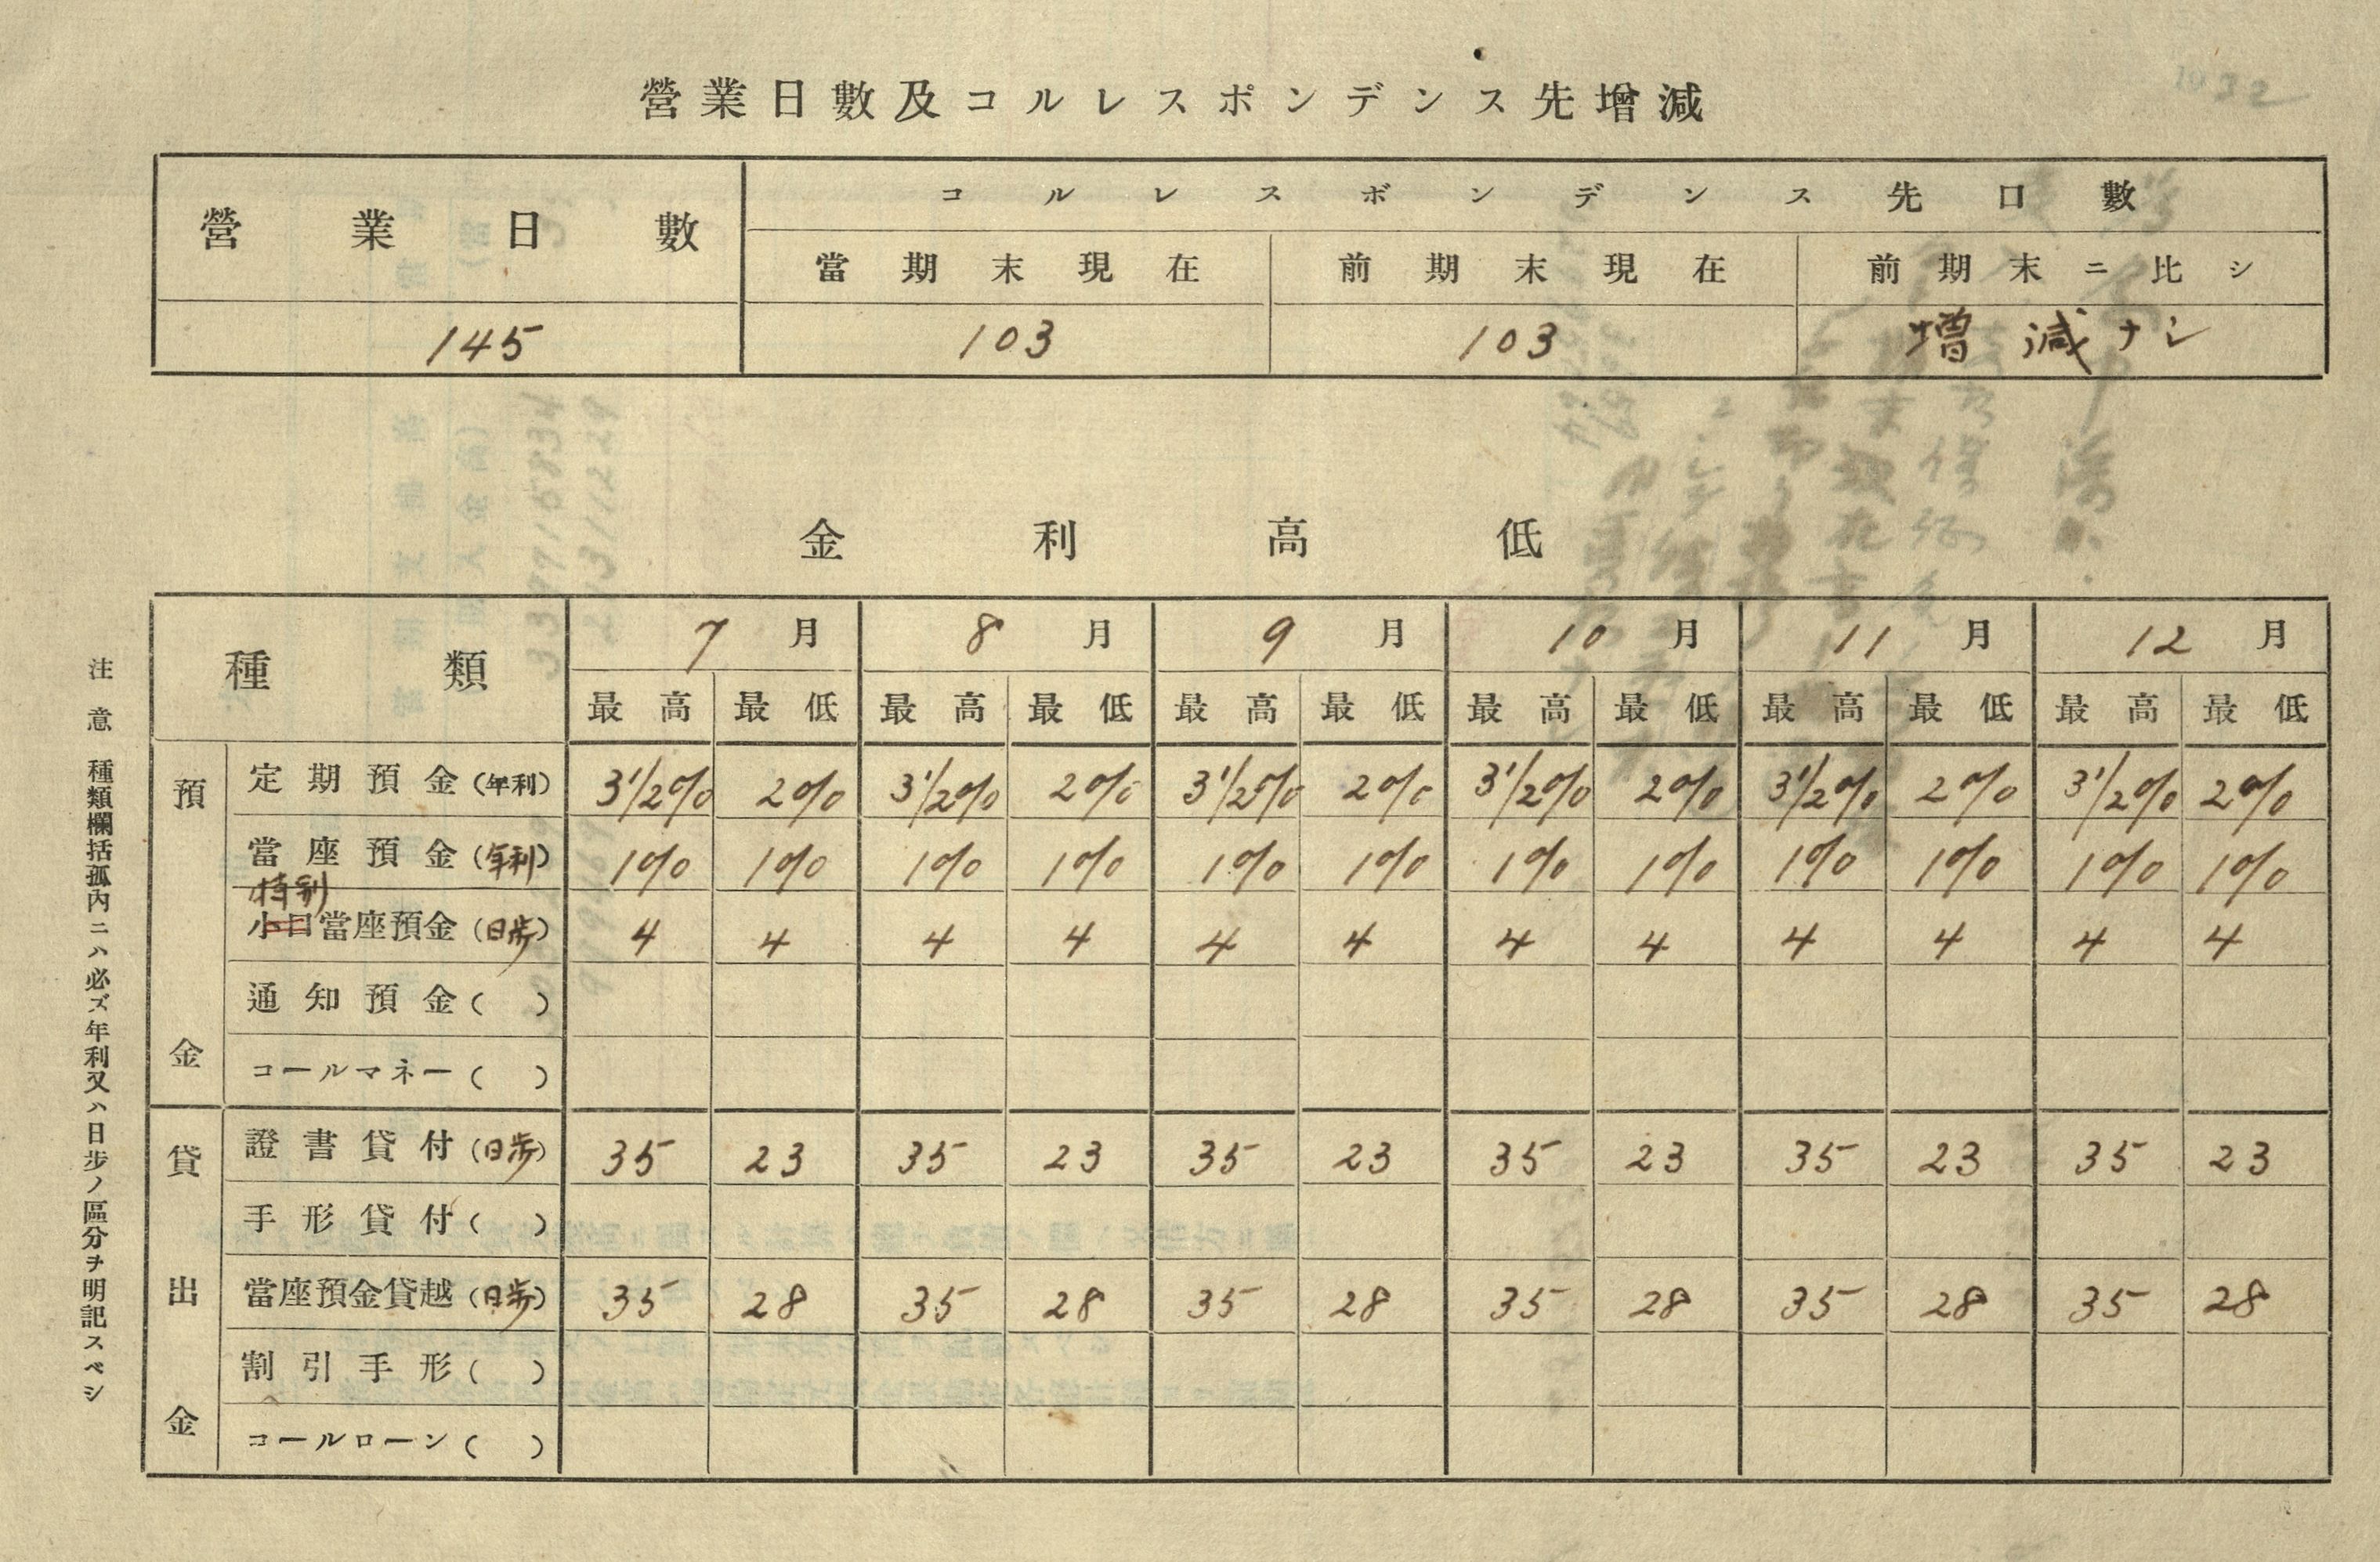 1932
營業日數及コルレスポンデンス先增減
營業日數 コルレスポンデンス先口數
當期末現在 前期末現在 前期末ニ比シ
145 103 103 增減ナシ
金利高低
種類 7月 8月 9月 10月 11月 12月
最高 最低 最高 最低 最高 最低 最高 最低 最高 最低 最高 最低
預金
定期預金(年利) 3 1/2% 2% 3 1/2% 2% 3 1/2% 2% 3 1/2% 2% 3 1/2% 2% 3 1/2% 2%
當座預金(年利) 1% 1% 1% 1% 1% 1% 1% 1% 1% 1% 1% 1%
特別
小口當座預金(日歩) 4 4 4 4 4 4 4 4 4 4 4 4
通知預金( )
コールマネー( )
貸出金
證書貸付(日歩) 35 23 35 23 35 23 35 23 35 23 35 23
手形貸付( )
當座預金貸越(日歩) 35 28 35 28 35 28 35 28 35 28 35 28
割引手形( )
コールローン( )
注意 種類欄括孤內ニハ必ズ年利又ハ日步ノ區分ヲ明記スベシ